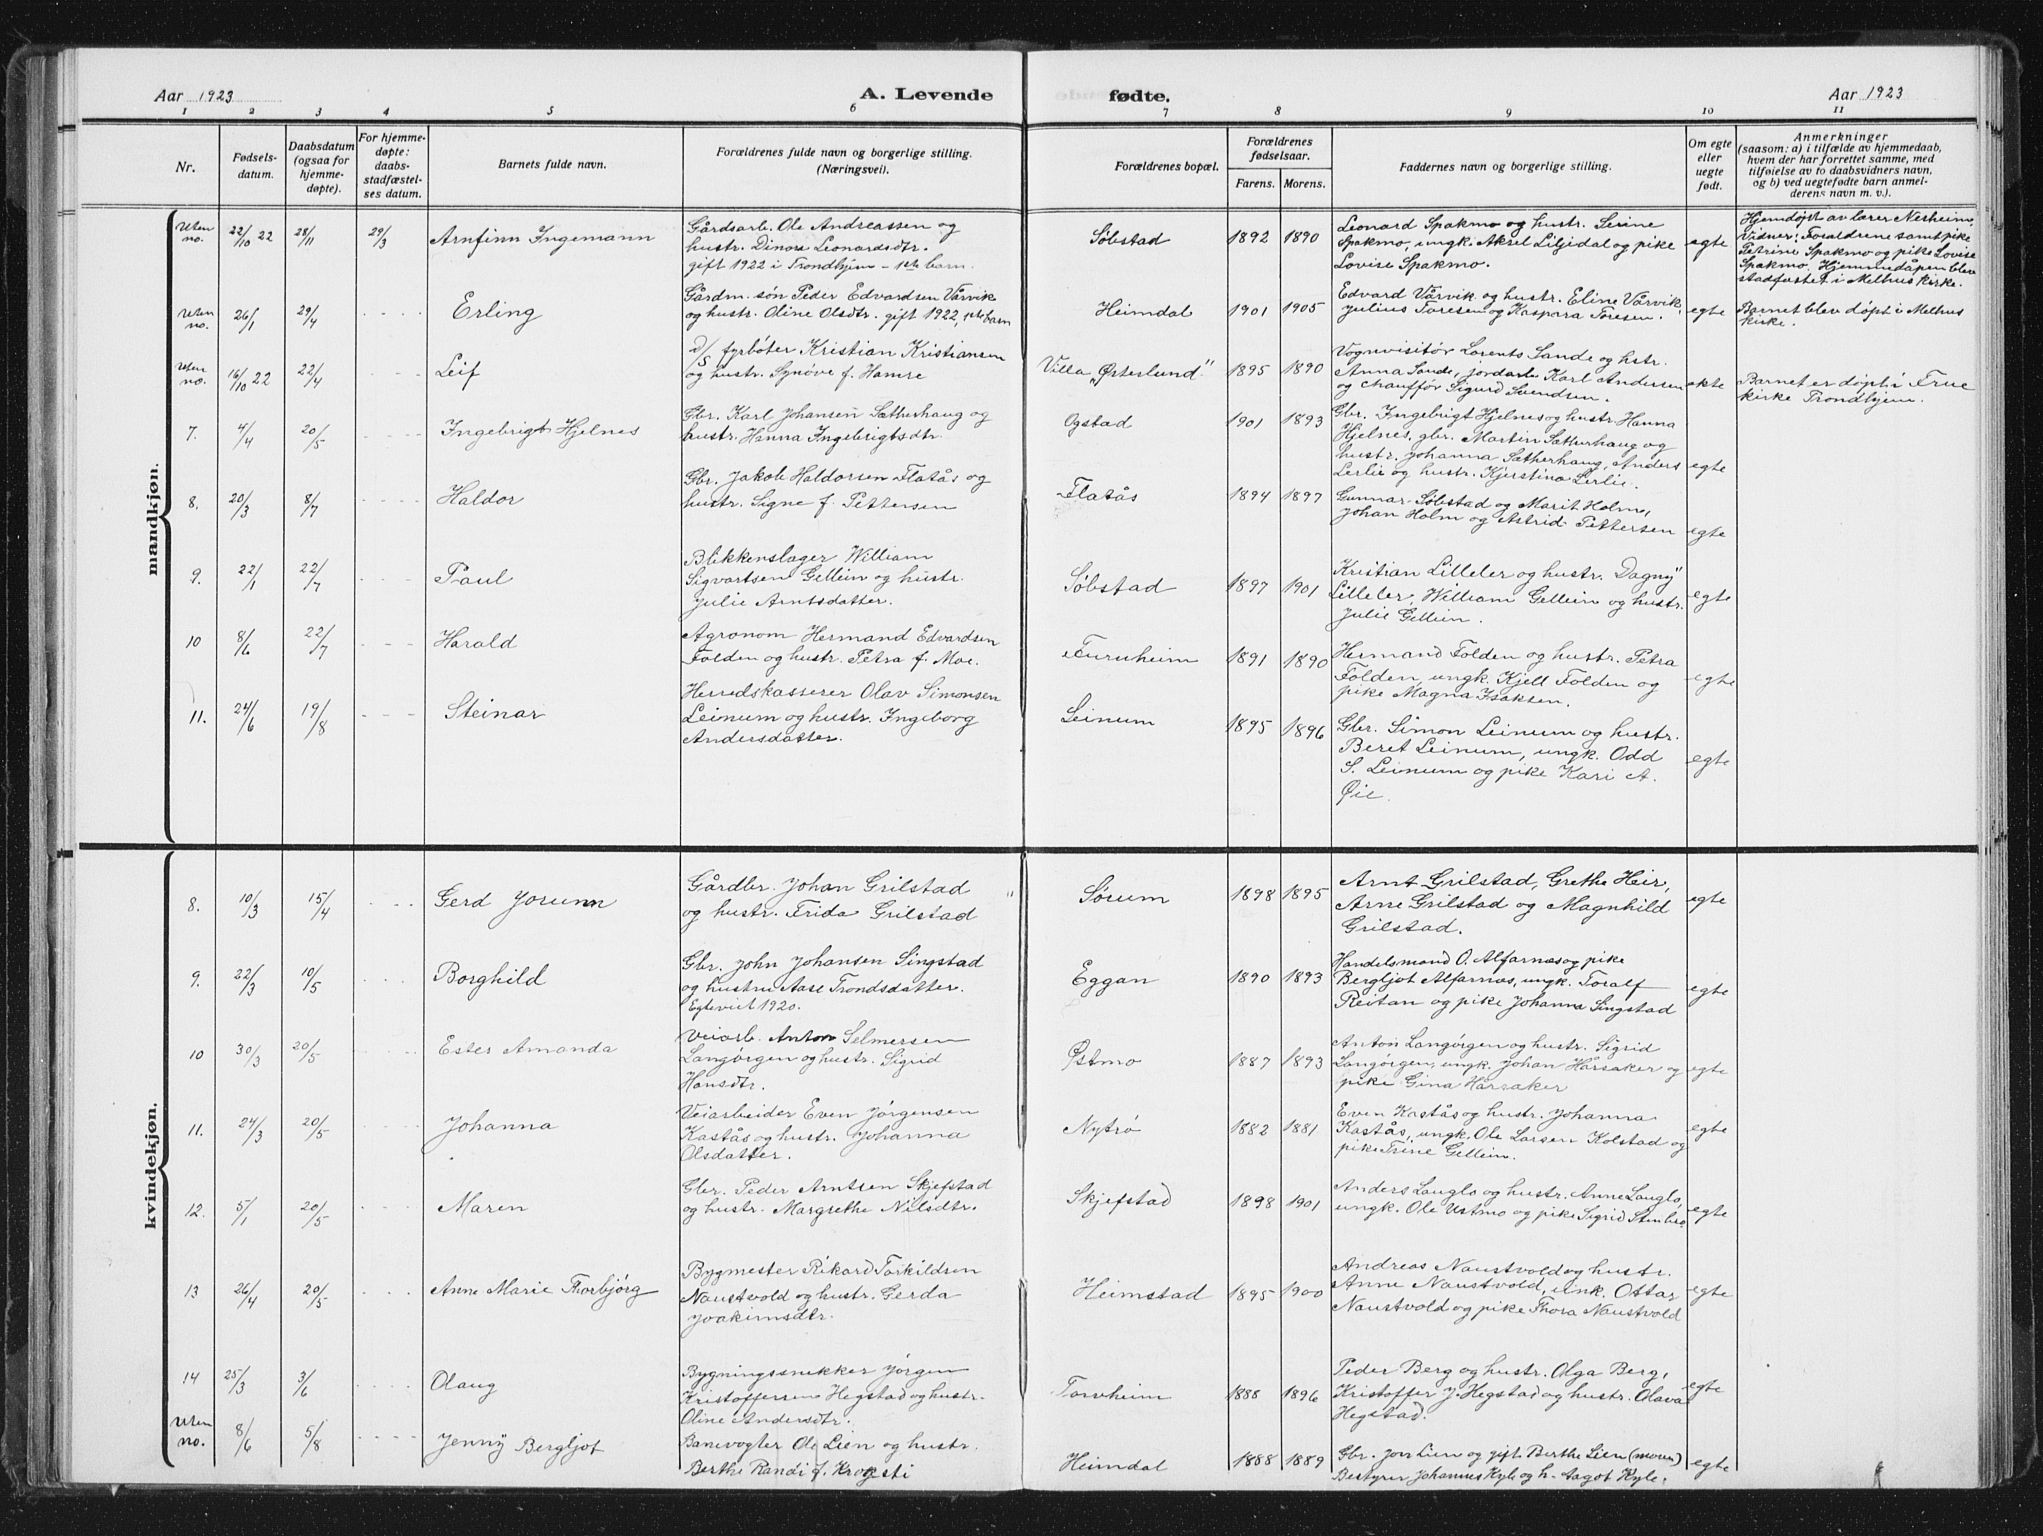 Aar 1923
A. Levende
fødte.
Aar 1923
1 2 3 4 5 6 7 8 9 10 11
Nr.
Fødsels-
datum.
Daabsdatum
(ogsaa for
hjemme-
døpte).
For hjemme-
døpte:
daabs-
stadfæstel-
ses datum.
Barnets fulde navn.
Forældrenes fulde navn og borgerlige stilling.
(Næringsvei).
Forældrenes bopæl.
Forældrenes
fødselsaar.
Farens. Morens.
Faddernes navn og borgerlige stilling.
Om egte
eller
uegte
født.
Anmerkninger
(saasom: a) i tilfælde av hjemmedaab,
hvem der har forrettet samme, med
tilføielse av to daabsvidners navn,
og b) ved uegtefødte barn anmel-
derens navn m. v.).
mandkjøn.
Uten
no.
22/10 22
28/11
29/3
Arnfinn Ingemann
Gårdsarb. Ole Andreassen og
hustr. Dinora Leonardsdtr.
gift 1922 i Trondhjem - 1ste barn.
Søbstad
1892 1890
Leonard Spakmo og hustr. Serine
Spakmo, ungk. Aksel Liljedal og pike
Lovise Spakmo.
egte
Hjemdøpt av lærer Nesheim,
Vidner: Forældrene samt pike
Petrine Spakmo og pike Lovise
Spakmo. Hjemmedåpen blev
stadfæstet i Melhus kirke.
Uten
no.
26/1
29/4
Erling
Gårdm. søn Peder Edvardsen Vårvik
og hustr. Oline Olsdtr. gift 1922, 1ste barn
Heimdal
1901 1905
Edvard Vårvik og hustr. Eline Vårvik,
Julius Toresen og Kaspara Toresen.
egte
Barnet blev døpt i Melhus
kirke.
Uten
no.
16/10 22
22/4
Leif
d/s fyrbøter Kristian Kristiansen
og hustr. Synøve f. Hamre
Villa „Østerlund"
1895 1890
Vognvisitør Lorents Sande og hstr.
Anna Sande, jordarb. Karl Andersen
og chauffør Sigurd Svendsen.
ekte
Barnet er døpt i Frue
kirke Trondhjem.
7.
4/4
20/5
Ingebrigt Hjelnes
Gbr. Karl Johansen Sætherhaug og
hustr. Hanna Ingebrigtsdtr.
Ogstad
1901 1893
Gbr. Ingebrigt Hjelnes og hustr. Hanna
Hjelnes, gbr. Martin Sætherhaug og
hustr. Johanna Sætherhaug, Anders
Lerlie og hustr. Kjerstina Lerlie.
egte
8.
20/3
8/7
Haldor
Gbr. Jakob Haldorsen Flatås og
hustr. Signe f. Pettersen
Flatås
1894 1897
Gunnar Søbstad og Marit Holm,
Johan Holm og Astrid Pettersen
egte
9.
22/1
22/7
Paul
Blikkenslager William
Sigvartsen Gellein og hustr.
Julie Arntsdatter.
Søbstad
1897 1901
Kristian Lilleler og hustr. Dagny
Lilleler, William Gellein og hustr.
Julie Gellein.
egte
10
8/6
22/7
Harald
Agronom Hermand Edvardsen
Folden og hustr. Petra f. Moe.
Furuheim
1891 1890
Hermand Folden og hustr. Petra
Folden, ungk. Kjell Folden og
pike Magna Isaksen.
egte
11.
24/6
19/8
Steinar
Herredskasserer Olav Simonsen
Leinum og hustr. Ingeborg
Andersdatter.
Leinum
1895 1896
Gbr. Simon Leinum og hustr.
Beret Leinum, ungk. Odd
S. Leinum og pike Kari A.
Øie.
egte
kvindekjøn.
8.
10/3
15/4
Gerd Jorunn
Gårdbr. Johan Grilstad
og hustr. Frida Grilstad
Sørum
1898 1895
Arnt Grilstad, Grethe Heir,
Arne Grilstad og Magnhild
Grilstad.
egte
9.
22/3
10/5
Borghild
Gbr. John Johansen Singstad
og hustru Aase Trondsdatter.
Egteviet 1920.
Eggan
1890 1893
Handelsmand O. Alfarnæs og pike
Bergljot Alfarnæs, ungk. Toralf
Reitan og pike Johanna Singstad
egte
10
30/3
20/5
Ester Amanda
Veiarb. Anton Selmersen
Langørgen og hustr. Sigrid
Hansdtr.
Østmo
1887 1893
Anton Langørgen og hustr. Sigrid
Langørgen, ungk. Johan Hårsaker og
pike Gina Hårsaker
egte
11.
24/3
20/5
Johanna
Veiarbeider Even Jørgensen
Kastås og hustr. Johanna
Olsdatter.
Nytrø
1882 1881
Even Kastås og hustr. Johanna
Kastås, ungk. Ole Larsen Kolstad og
pike Trine Gellein.
egte
12.
5/1
20/5
Maren
Gbr. Peder Arntsen Skjefstad
og hustr. Margrethe Nilsdtr.
Skjefstad
1898 1901
Anders Langlo og hustr. Anne Langlo,
ungk. Ole Ustmo og pike Sigrid Stenberg
egte
13
26/4
20/5
Anne Marie Thorbjørg
Bygmester Rikard Torkildsen
Naustvold og hustr. Gerda
Joakimsdtr.
Heimstad
1895 1900
Andreas Naustvold og hustr.
Anne Naustvold, unk. Ottar
Naustvold og pike Thora Naustvold
egte
14
25/3
3/6
Olaug
Bygningssnekker Jørgen
Kristoffersen Hegstad og hustr.
Oline Andersdtr.
Torvheim
1888 1896
Peder Berg og hustr. Olga Berg,
Kristoffer J. Hegstad og hustr. Olava
Hegstad.
egte
Uten
no.
8/6
5/8
Jenny Bergljot
Banevogter Ole Lien og hustr.
Berthe Randi f. Krogsti
Heimdal
1888 1889
Gbr. Jon Lien og gift Berthe Lien (moren)
Bestyrer Johannes Kyle og h. Aagot Kyle.
egte